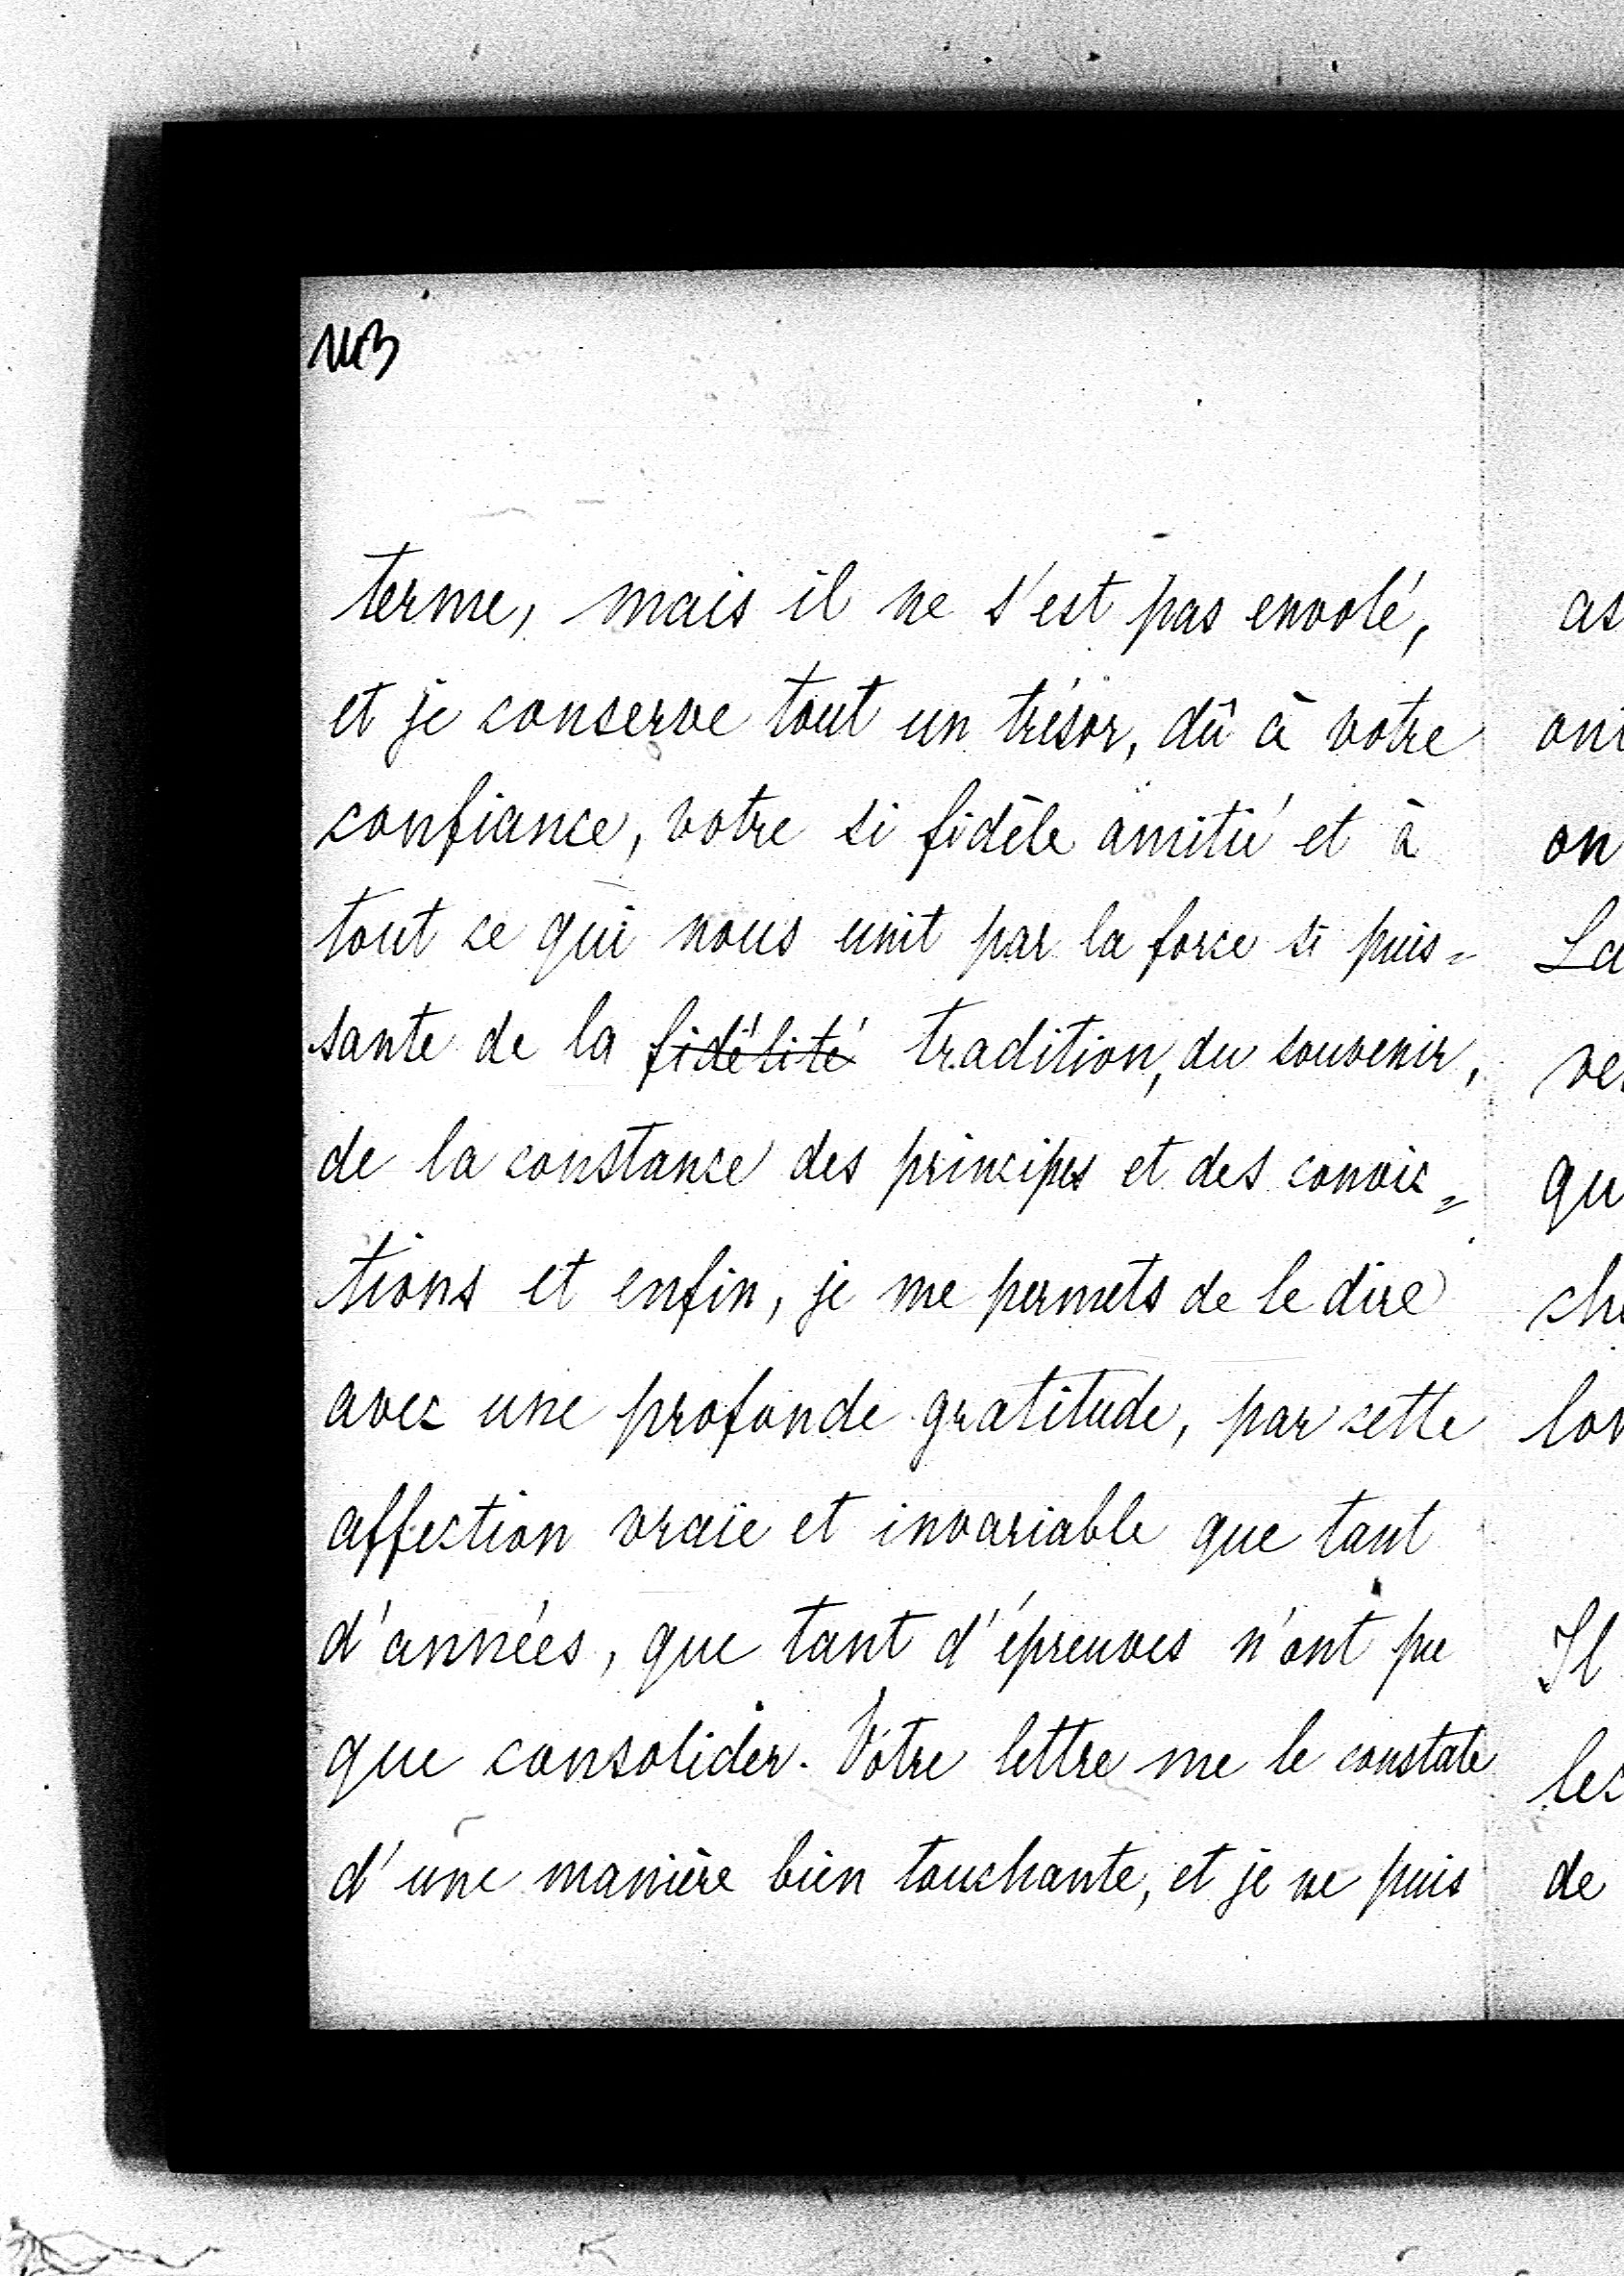 terme, mais il ne s'est pas envolé,
et je conserve tout un trésor, dû à votre
confiance, votre si fidèle amitié et à
tout ce qui nous unit par la force si puis=
sante de la fidélité tradition, du souvenir,
de la constance des principes et des convic=
tions et enfin, je me permets de le dire
avec une profonde gratitude, par cette
affection vraie et invariable que tant
d'années, que tant d'épreuves n'ont pu
que consolider. Vôtre lettre me le constate
d'une manière bien touchante, et je ne puis
as
on
La
qu
Il
de